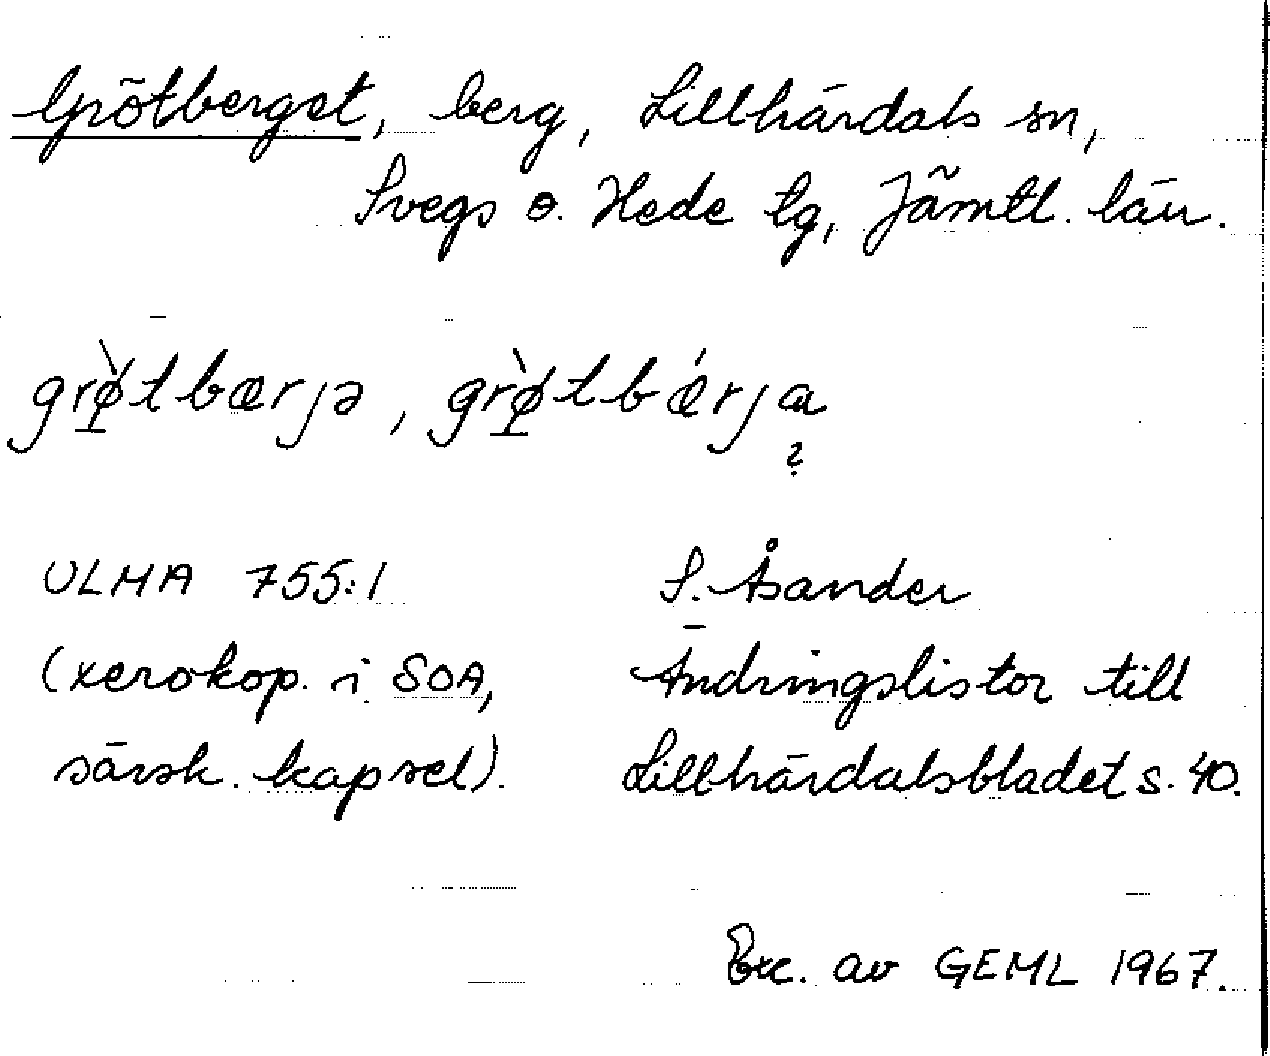 Grötberget, berg, Lillhärdals sn,
Svegs o. Hede tg, Jämtl. län.
grø̀tbærjə, grø̀tbǽrja
?
ULMA 755:1 S. Åsander
(xerokop. i SOA, Ändringslistor till
särsk. kapsel). Lillhärdalsbladet s. 40.
Exc. av GEML 1967.